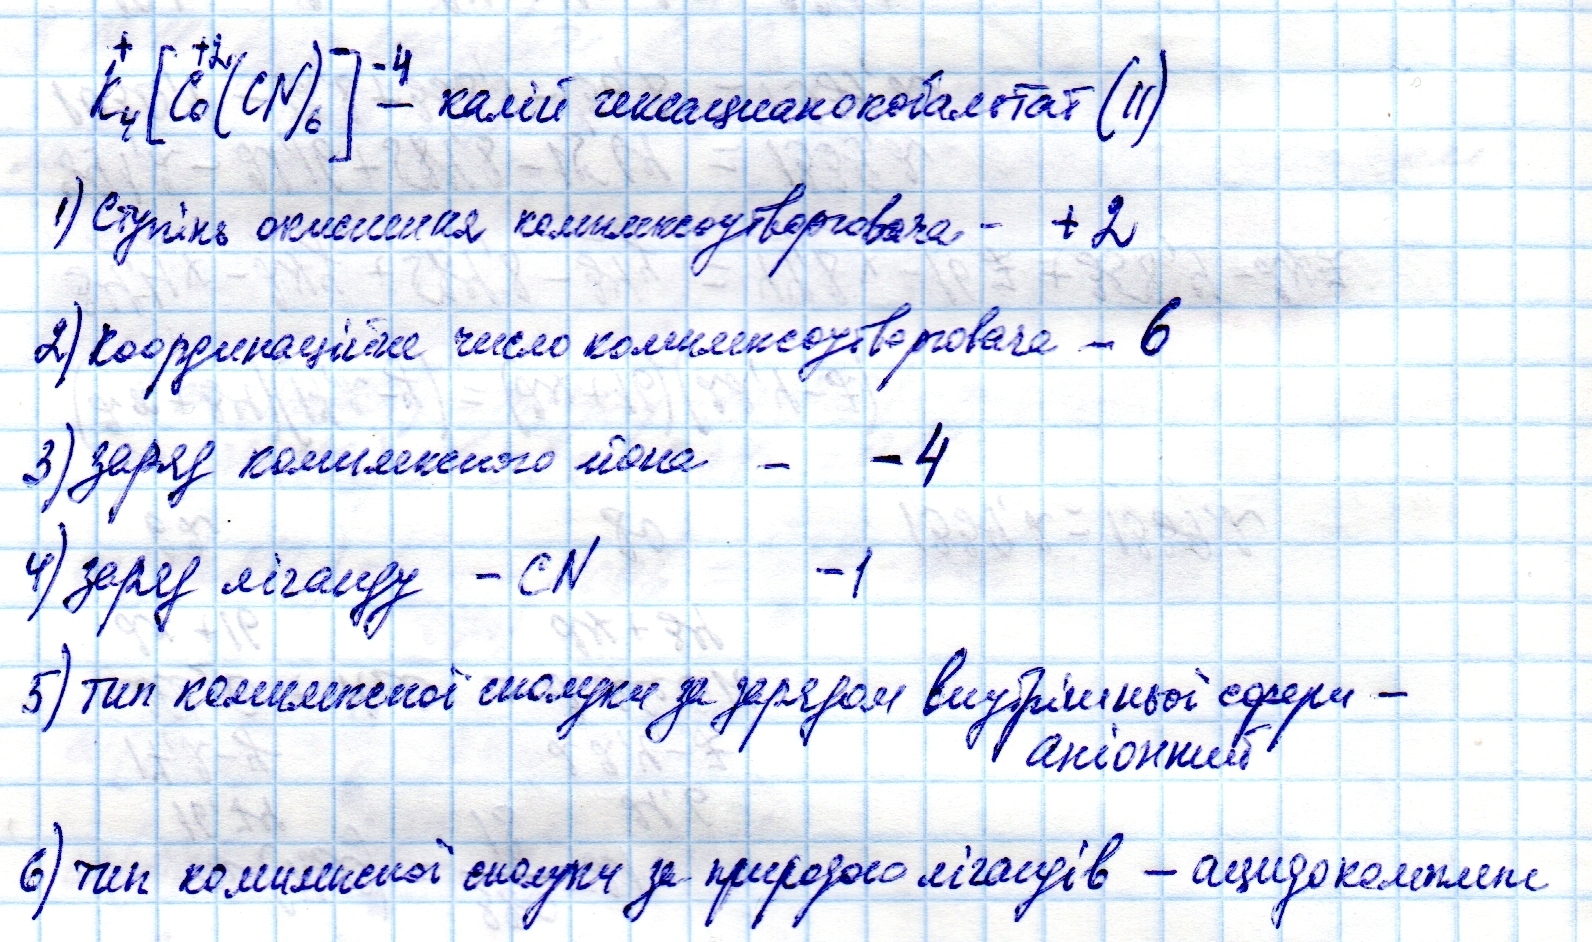 K₄⁺[Co⁺²(CN)₆]⁻⁴ – калій гексацианокобальтат (II)
1) Ступінь окиснення комплексоутворювача - +2
2) Координаційне число комплексоутворювача – 6
3) заряд комплексного йона – -4
4) заряд ліганду – CN -1
5) тип комплексної сполуки за зарядом внутрішньої сфери –
аніонний
6) тип комплексної сполуки за природою лігандів – ацидокомплекс